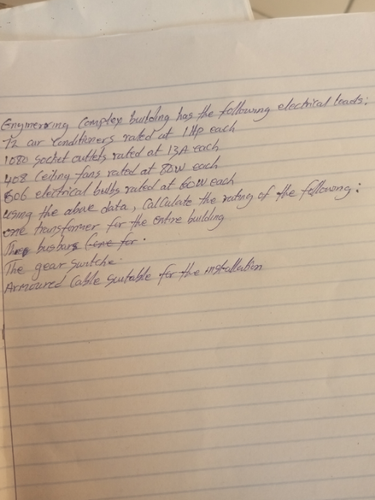 Engineering Complex building has the following electrical loads:
72 air conditioners rated at 1Hp each
1080 socket outlets rated at 13A each
408 Ceiling fans rated at 80W each
606 electrical bulbs rated at 60W each
Using the above data, Calculate the rating of the following:
one transformer for the entire building
The busbars for.
The gear switche.
Armoured Cable suitable for the installation